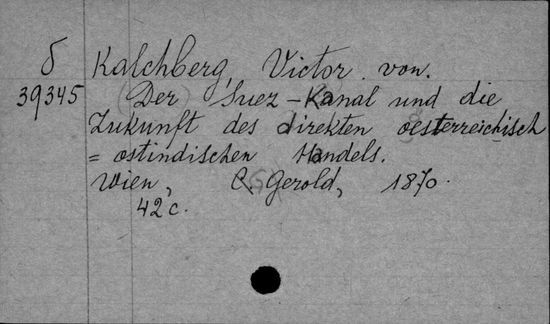 δ Kalchberg, Victor von.
39345 Der Suez-Kanal und die
Zukunft des direkten oesterreichisch
= ostindischen Handels.
Wien, C. Gerold, 1870.
42 c.